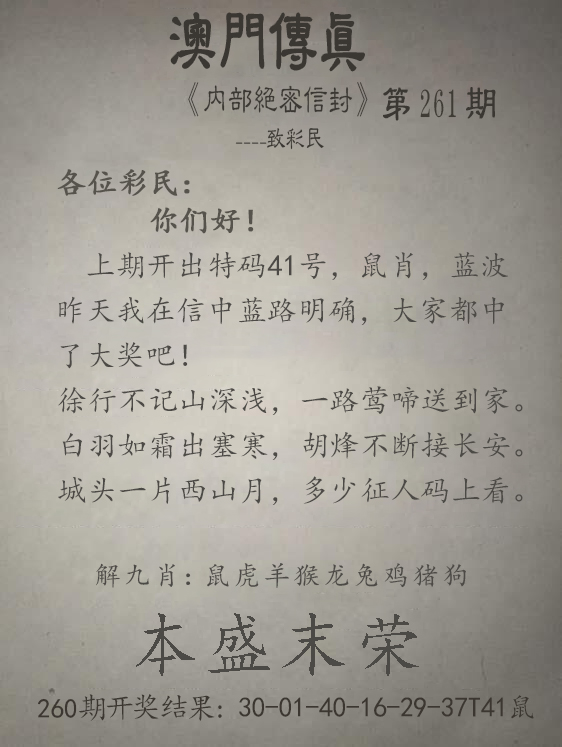 澳門傳眞
《内部絕密信封》第261期
----致彩民
各位彩民：
你们好！
上期开出特码41号，鼠肖，蓝波
昨天我在信中蓝路明确，大家都中
了大奖吧！
徐行不记山深浅，一路莺啼送到家。
白羽如霜出塞寒，胡烽不断接长安。
城头一片西山月，多少征人码上看。
解九肖：鼠虎羊猴龙兔鸡猪狗
本盛末荣
260期开奖结果：30-01-40-16-29-37T41鼠